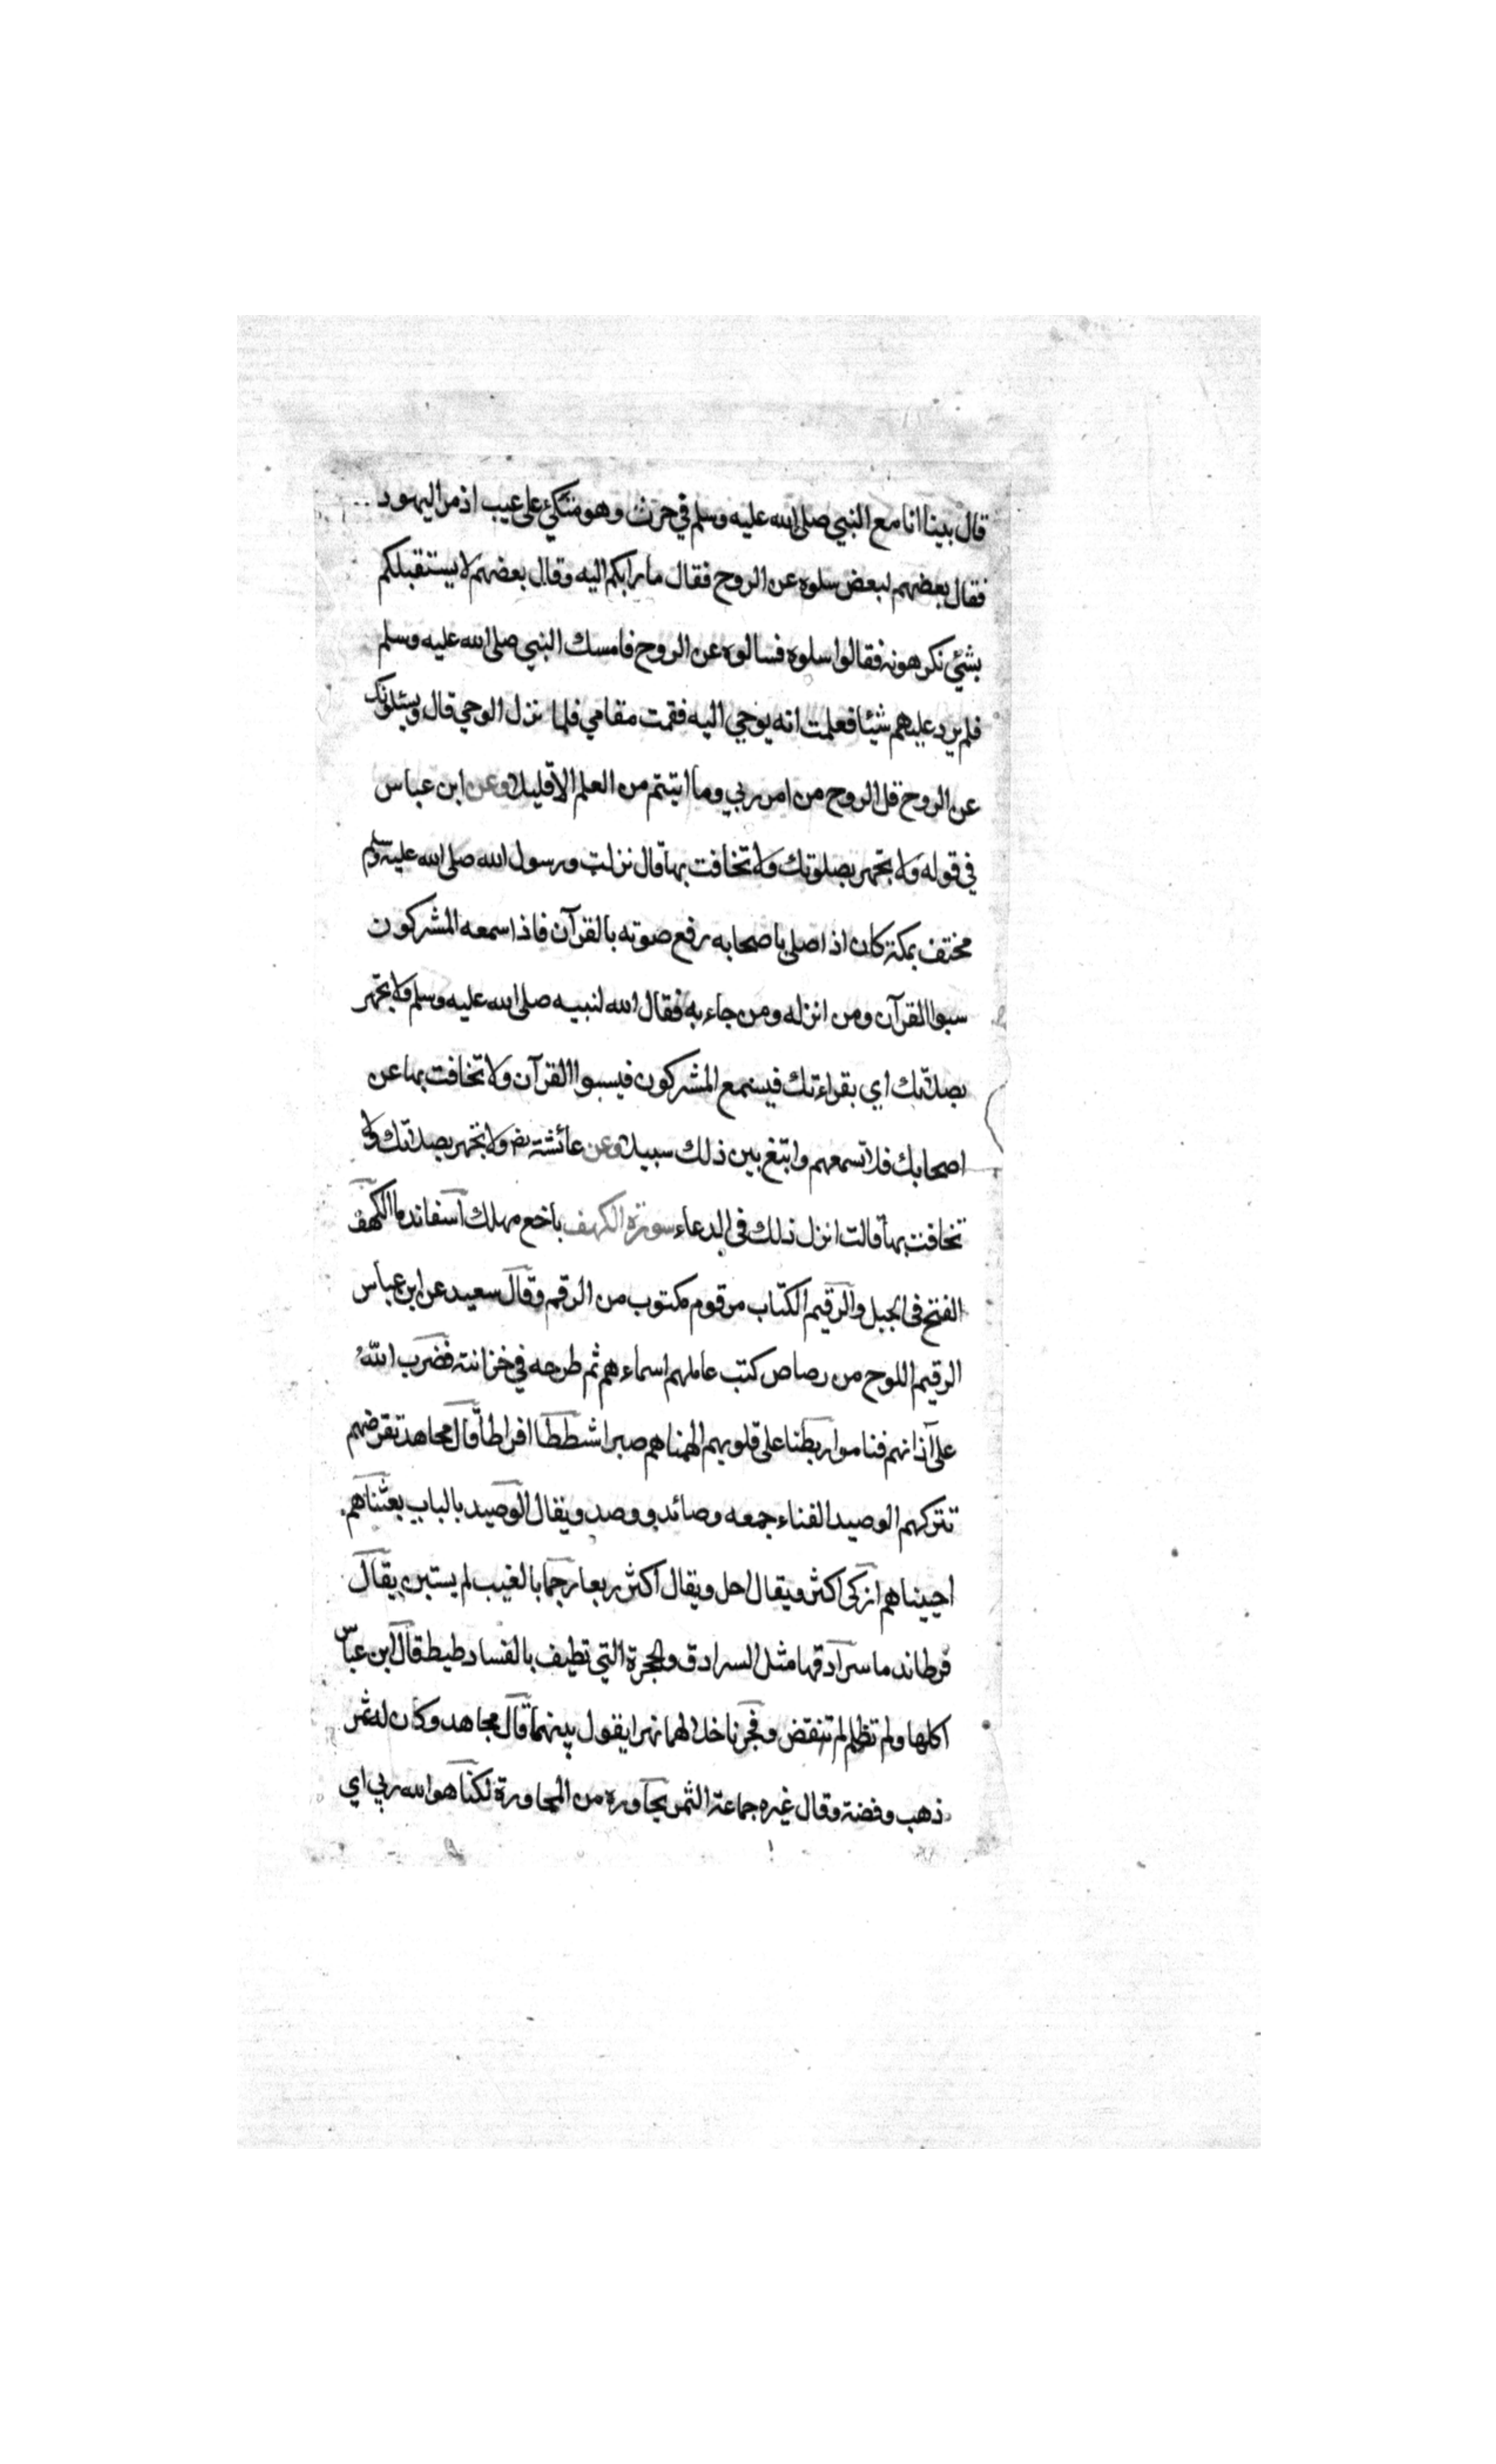 قال بينا انا مع النبي صلى الله عليه وسلم في حرث وهو متكئ على عيب اذ مر اليهود
فقال بعضهم لبعض سلوه عن الروح فقال ما رابكم اليه وقال بعضهم لا يستقبلكم
بشئ نكرهونه فقالوا سلوه فسالوه عن الروح فامسك النبي صلى الله عليه وسلم
فلم يرد عليهم شيئا فعلمت انه يوحي اليه فقمت مقامي فلما نزل الوحي قال ويسئلونك
عن الروح قل الروح من امر ربي وما اتيتم من العلم الا قليلا وعن ابن عباس
في قوله ولا تجهر بصلوتك ولا تخافت بها قال نزلت ورسول الله صلى الله عليه وسلم
مختف بمكة كان اذا صلى باصحابه رفع صوته بالقرآن فاذا سمعه المشركون
سبوا القرآن ومن انزله ومن جاء به فقال الله لنبيه صلى الله عليه وسلم ولا تجهر
بصلاتك اي بقراءتك فيسمع المشركون فيسبوا القرآن ولا تخافت بها عن
اصحابك فلا تسمعهم وابتغ بين ذلك سبيلا وعن عائشة رض ولا تجهر بصلاتك ولا
تخافت بها قالت انزل ذلك في الدعاء سورة الكهف باخع مهلك اسفا ندما الكهف
الفتح في الجبل والرقيم الكتاب مرقوم مكتوب من الرقم وقال سعيد عن ابن عباس
الرقيم اللوح من رصاص كتب عاملهم اسماءهم ثم طرحه في خزانته فضرب الله
على آذانهم فناموا ربطنا على قلوبهم الهمناهم صبرا شططا افراطا قال مجاهد تقرضهم
تتركهم الوصيد الفناء جمعه وصائد ووصد ويقال الوصيد بالباب بعثناهم
احييناهم ازكى اكثر ويقال احل ويقال اكثر ريعا رجما بالغيب لم يستبن يقال
فرطا ندما سرادقها مثل السرادق والحجرة التي تطيف بالفساطيط قال ابن عباس
اكلها ولم تظلم لم تنقض وفجرنا خلالهما نهرا يقول بينهما قال مجاهد وكان له ثمر
ذهب وفضة وقال غيره جماعة الثمر يحاوره من المحاورة لكنا هو الله ربي اي